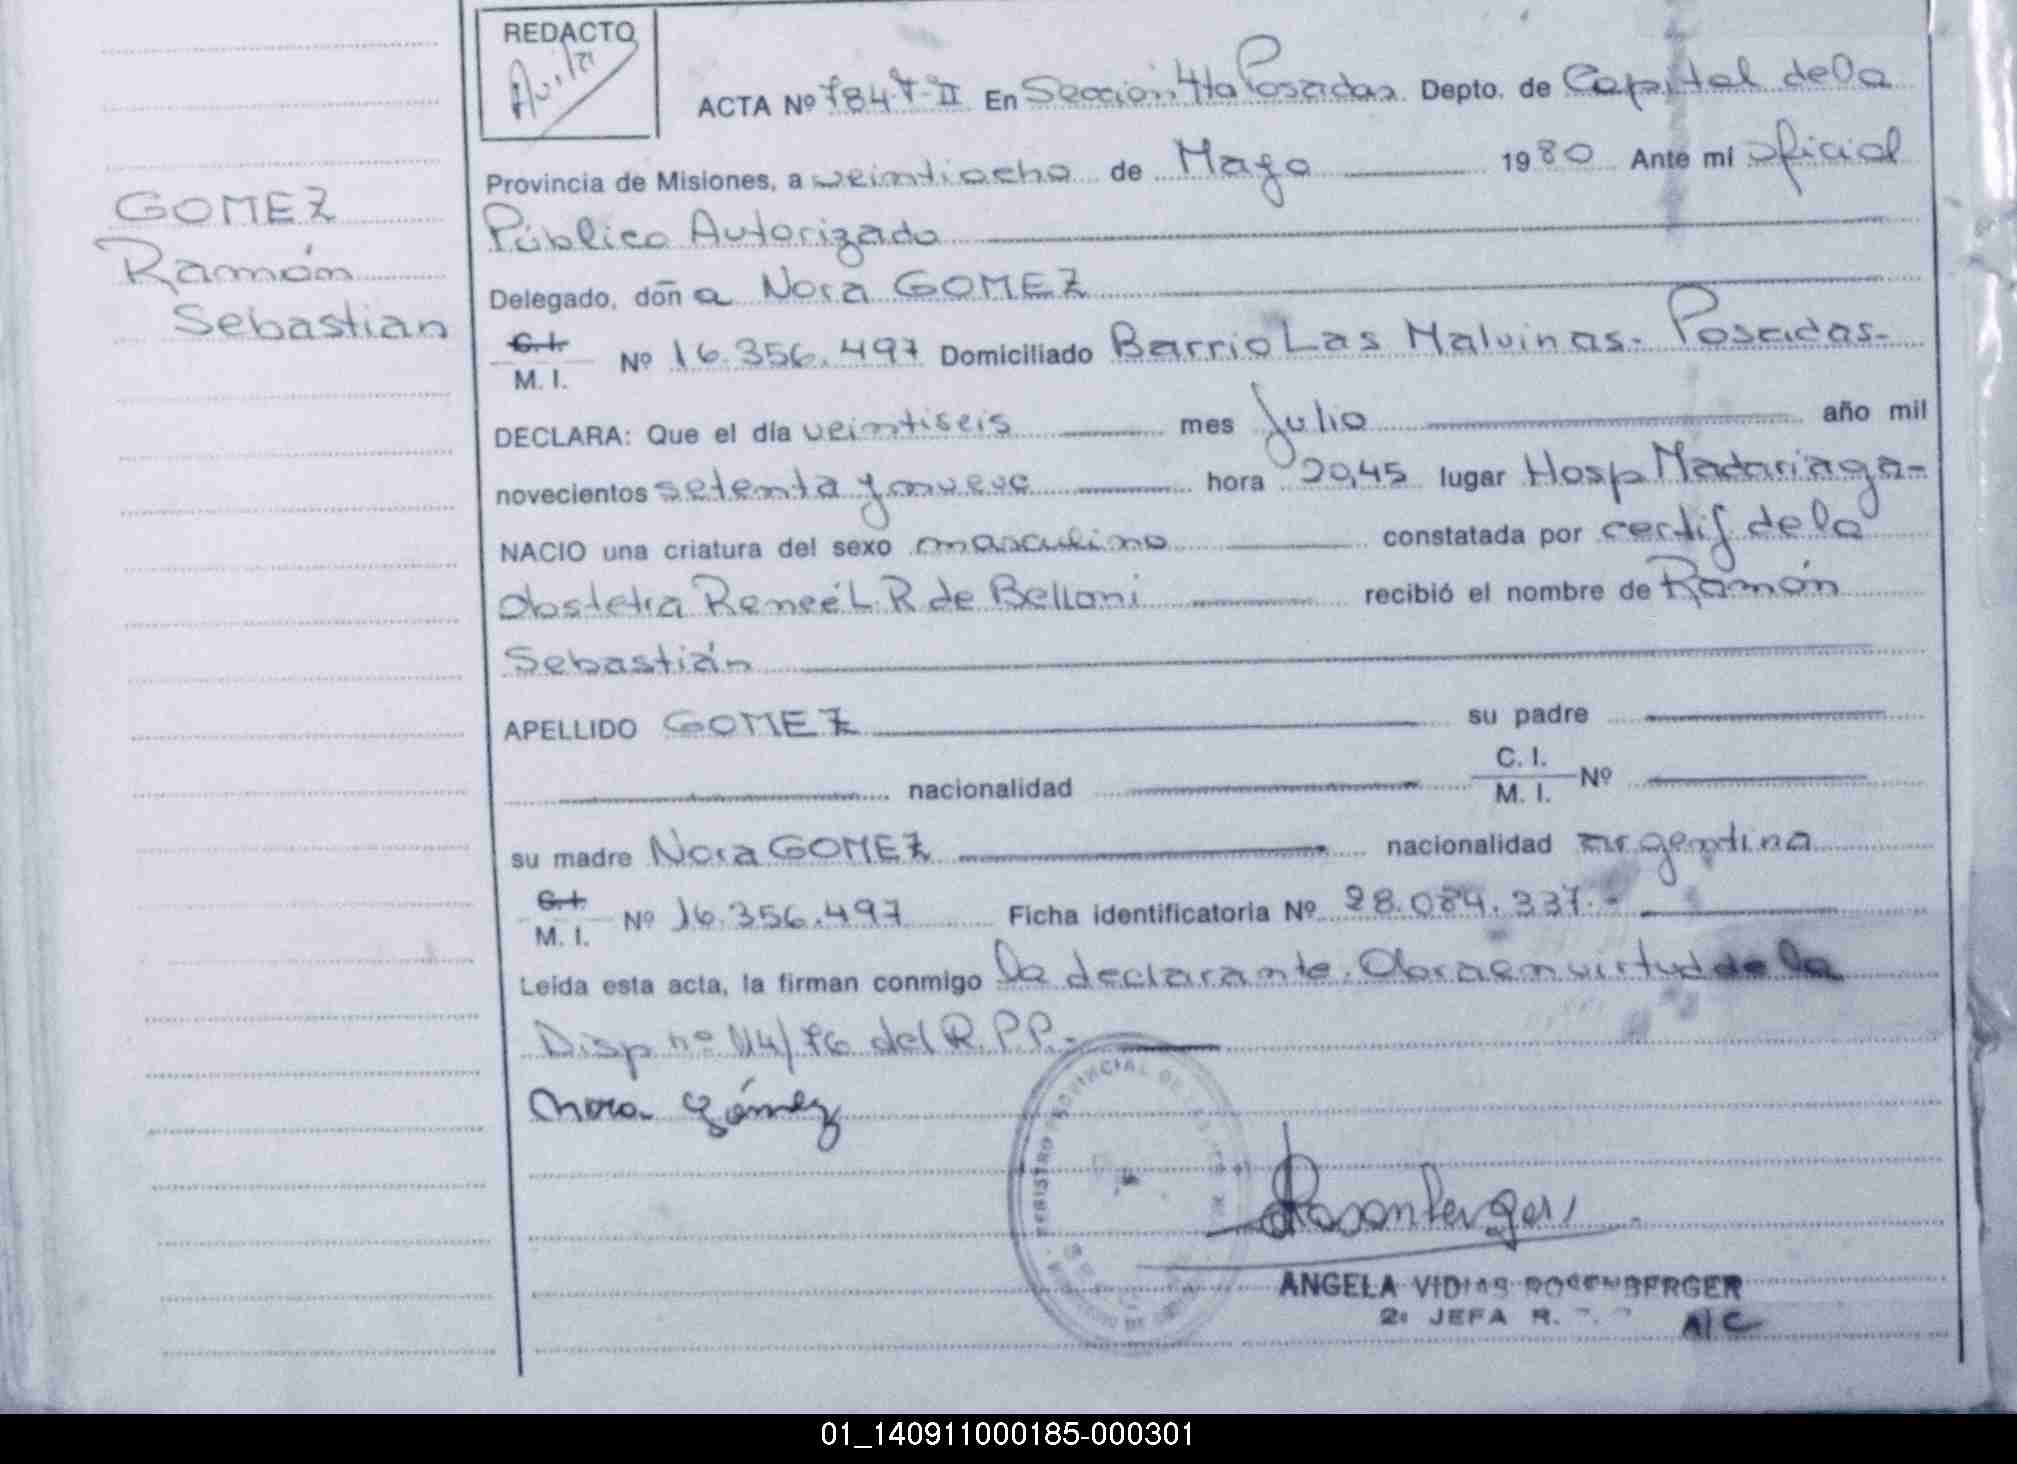 REDACTO
ACTA Nº 784-T-II En Sección 4ta Posadas Depto. de Capital de la
Provincia de Misiones, a veintiocho de Mayo 1980 Ante mi oficial
Público Autorizado
Delegado, don a Nora GOMEZ
C.I. M.I. Nº 16.356.497 Domiciliado Barrio Las Malvinas- Posadas-
DECLARA: Que el día veintiseis mes Julio año mil
novecientos setenta y nueve hora 20,45 lugar Hosp Madariaga-
NACIO una criatura del sexo masculino constatada por certif de la
obstetra Reneé L. R de Belloni recibió el nombre de Ramón
Sebastián
APELLIDO GOMEZ su padre
nacionalidad C. I. M. I. Nº
su madre Nora GOMEZ nacionalidad argentina
C.I. M. I. Nº 16.356.497 Ficha identificatoria Nº 28.084.337.-
Leída esta acta, la firman conmigo la declarante. Obra en virtud de la
Disp nº 114/76 del R.P.P.-
Nora Gómez
REGISTRO PROVINCIAL DE LAS
Rosenberger
ANGELA VIDIAS ROSENBERGER
2º JEFA R.
A/C
GOMEZ
Ramón
Sebastian
01_140911000185-000301